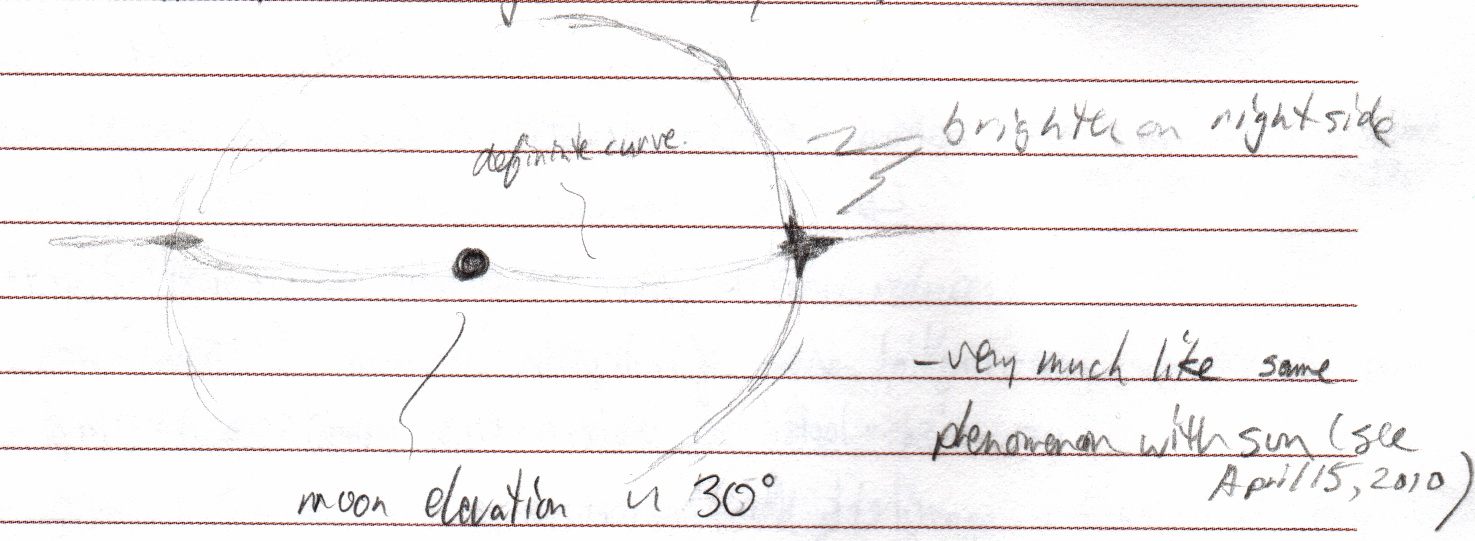 definite curve.
brighter on right side
- very much like same
phenomenon with sun (see
April 15, 2010)
moon elevation ~ 30°